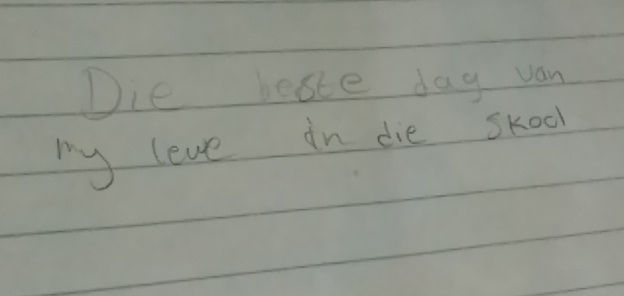 Die beste dag van
my leve in die skool